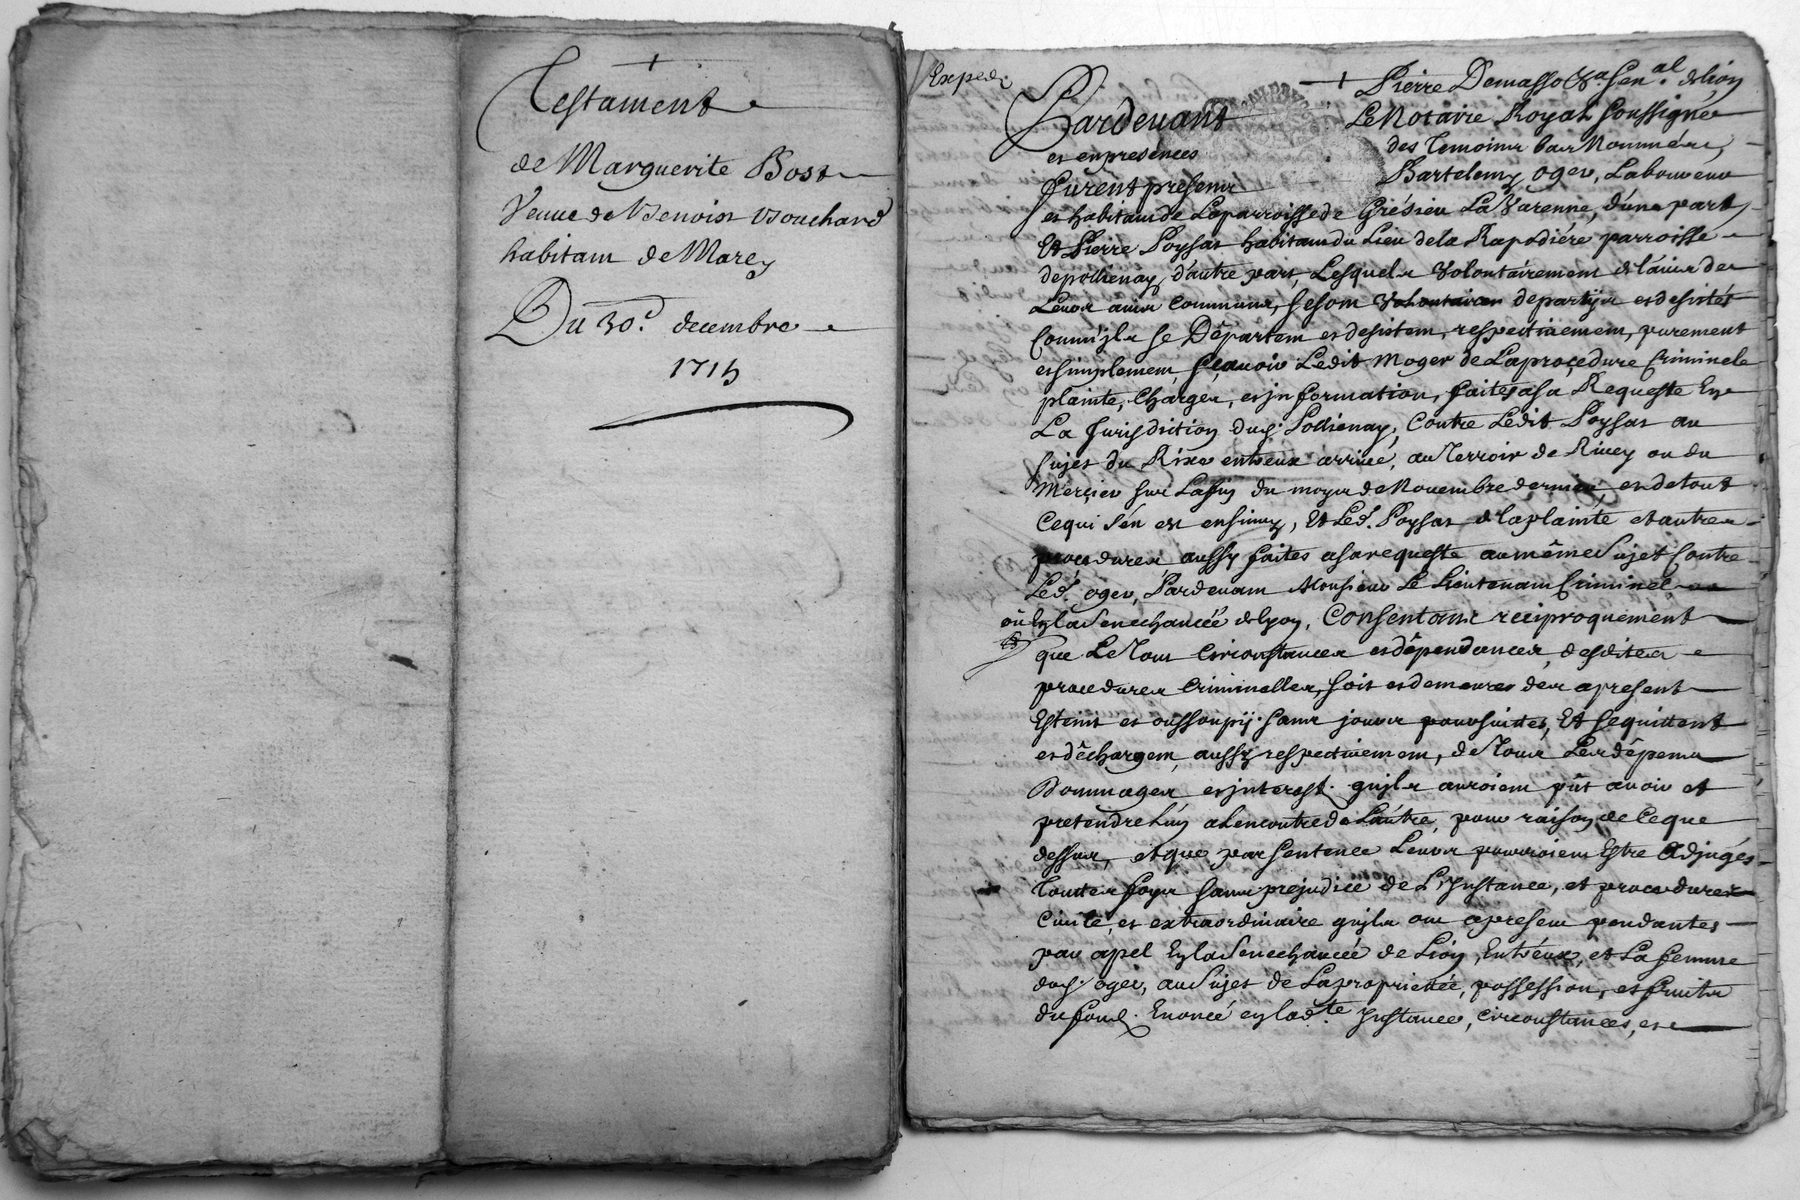 Testament
de Marguerite Bost
Veuue de Benoist Bouchard
habitant de Marcy
Du 30.e decembre
1715
Exped.
Pierre Demasso &a Senal. de Lion
Pardeuant Le Notaire Royal soussigné
et en presences des Temoins bas Nommés,
furent presens Bartelemy oger, Laboureur
et habitant de La parroisse de Grésieu La Varenne, d'une part
Et Pierre Poysat habitant du Lieu de la Rapodiére parroisse
de pollienay, d'autre part, Lesquels Volontairement de l'auis de
Leurs amis communs, se sont Volontaires departijs et desistés
Comm'jls se Départent et desistent, respectiuement, purement
et simplement, sçauoir Ledit oger de La procedure Criminele
plainte, Charges, et jnformation, faites a sa Requeste En
La Jurisdiction dud. Pollienay, Contre Ledit Poysat au
sujet du Rixe entreux arriué, au Terroir de Riuey ou du
Mercier sur La fin du moys de Nouembre dernier, et de tout
Ce qui s'én est ensiuuy, Et Led. Poysat de la plainte et autres
procedures aussy faites a sa requeste au même sujet Contre
Led. oger, Pardeuant Monsieur Le Lieutenant Criminel
en la Senechaucée de Lyon, Consentant reciproquement
que Le Tout Circonstances et dépendances, desdites
procedures Criminelles, soit et demeure des a present
Esteint et assoupij sans jouoir poursuittes, Et se quittent
et déchargent, aussy respectiuement, de Tous Les dépens
Dommages et jnterest. qujls auroient pût auoir et
pretendre L'un a Lencontre de L'autre, pour raison de Ce que
dessus, et que par sentence Leurs pourroient Estre Adjugés
Touttes foys sans prejudice de L'Jnstance, et procedures
Ciuile, et extraordinaire qujls ont a present pendantes
par apel En la Senechaucée de Lion, Entréux, et La femme
dud. oger, au Sujet de La proprietée, possession, et fruits
du fond. Enoncé en ladte. Jnstance, Circonstances, et